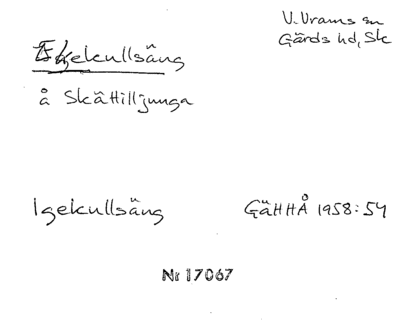 V. Vrams sn
Gärds hd, Sk
Igekullsäng
å Skättilljunga
Igekullsäng GäHHÅ 1958:54
Nr 17067